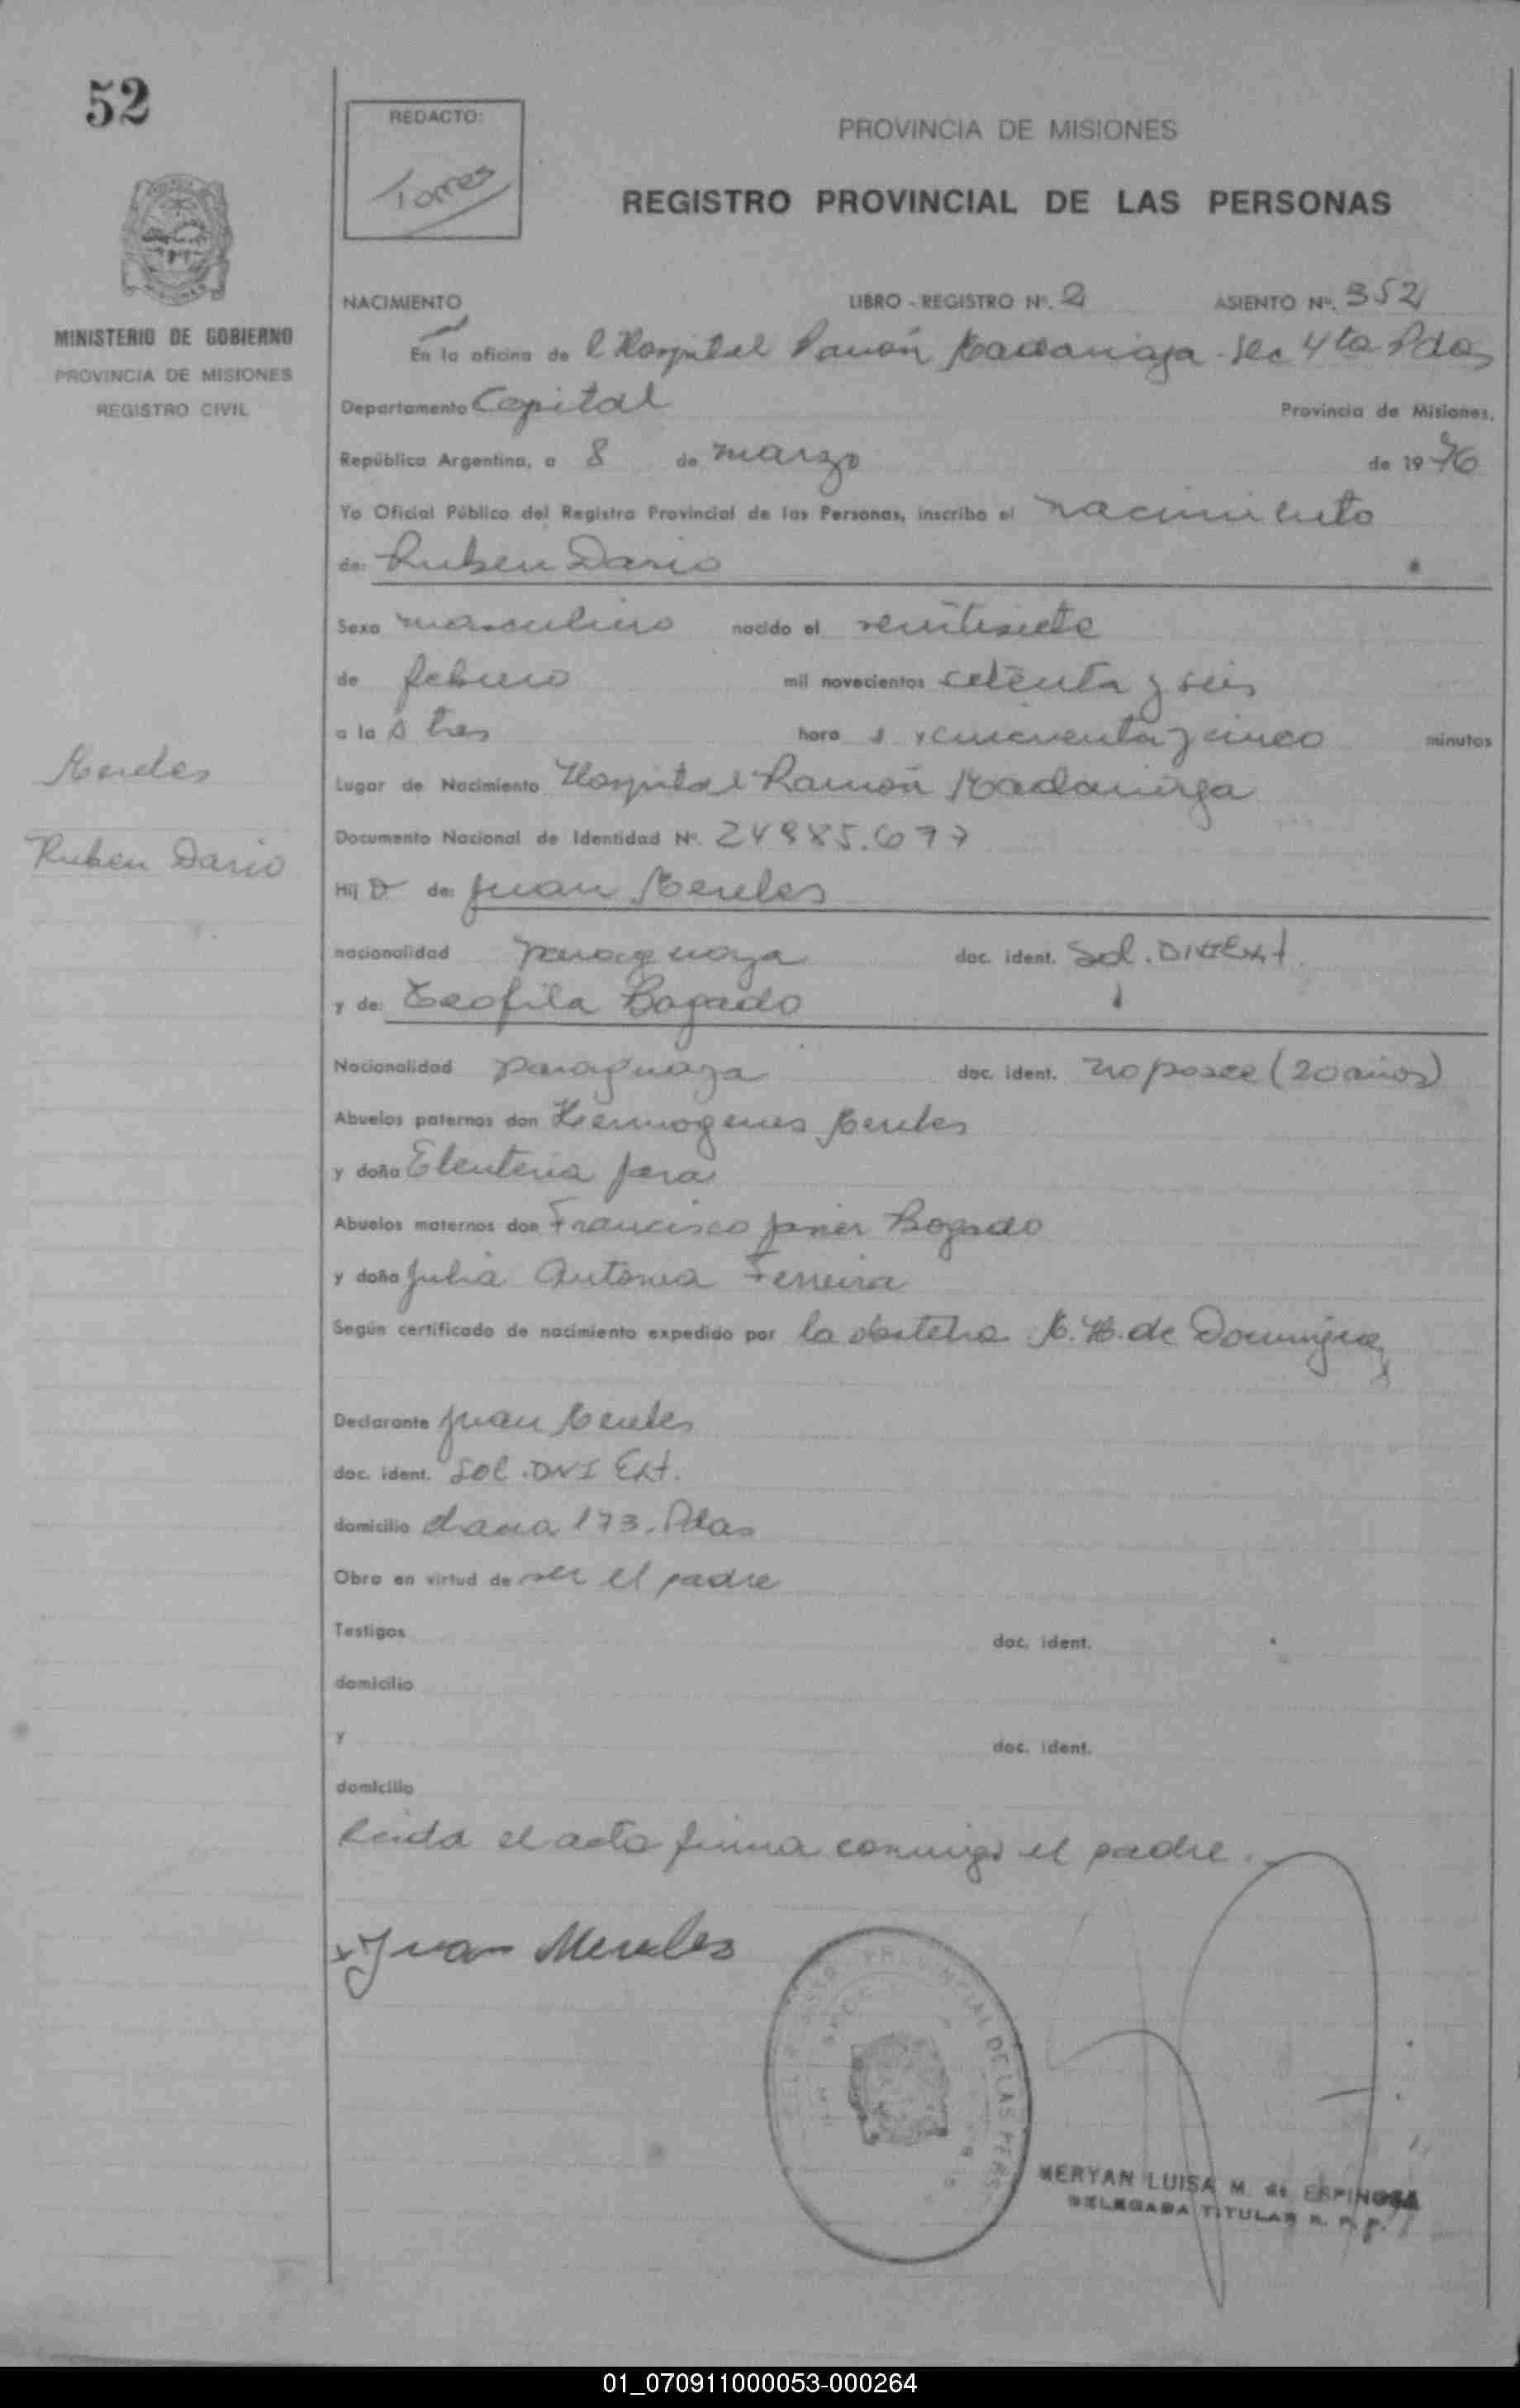 52
REDACTO:
Torres
PROVINCIA DE MISIONES
REGISTRO PROVINCIAL DE LAS PERSONAS
MINISTERIO DE GOBIERNO
PROVINCIA DE MISIONES
REGISTRO CIVIL
NACIMIENTO LIBRO - REGISTRO Nº. 2 ASIENTO Nº. 352
En la oficina de l Hospital Ramón Madariaga - Sec 4ta Pdas
Departamento Capital Provincia de Misiones.
República Argentina, a 8 de marzo de 1976
Yo Oficial Público del Registro Provincial de las Personas, inscribo el nacimiento
de: Ruben Dario
Sexo masculino nacido el veintisiete
de febrero mil novecientos setenta y seis
a la s tres hora s y cincuenta y cinco minutos
Lugar de Nacimiento Hospital Ramón Madariaga
Mereles
Ruben Dario
Documento Nacional de Identidad Nº. 24985.677
Hij o de: Juan Mereles
nacionalidad paraguaya doc. ident. Sol. DNI Ext.
y de: Teofila Bogado
Nacionalidad paraguaya doc. ident. no posee (20 años)
Abuelos paternos don Hermogenes Mereles
y doña Eleuteria Jara
Abuelos maternos don Francisco Javier Bogado
y doña Julia Antonia Ferreira
Según certificado de nacimiento expedido por la obstetra M. H. de Dominguez
Declarante Juan Mereles
doc. ident. Sol. DNI Ext.
domicilio chacra 173. Pdas
Obra en virtud de ser el padre
Testigos doc. ident.
domicilio
y doc. ident.
domicilio
Leida el acta firma conmigo el padre.
x Juan Mereles
PROVINCIAL DE LAS PERS
MERYAN LUISA M. de ESPINOSA
DELEGADA TITULAR R. P. P.
01_070911000053-000264